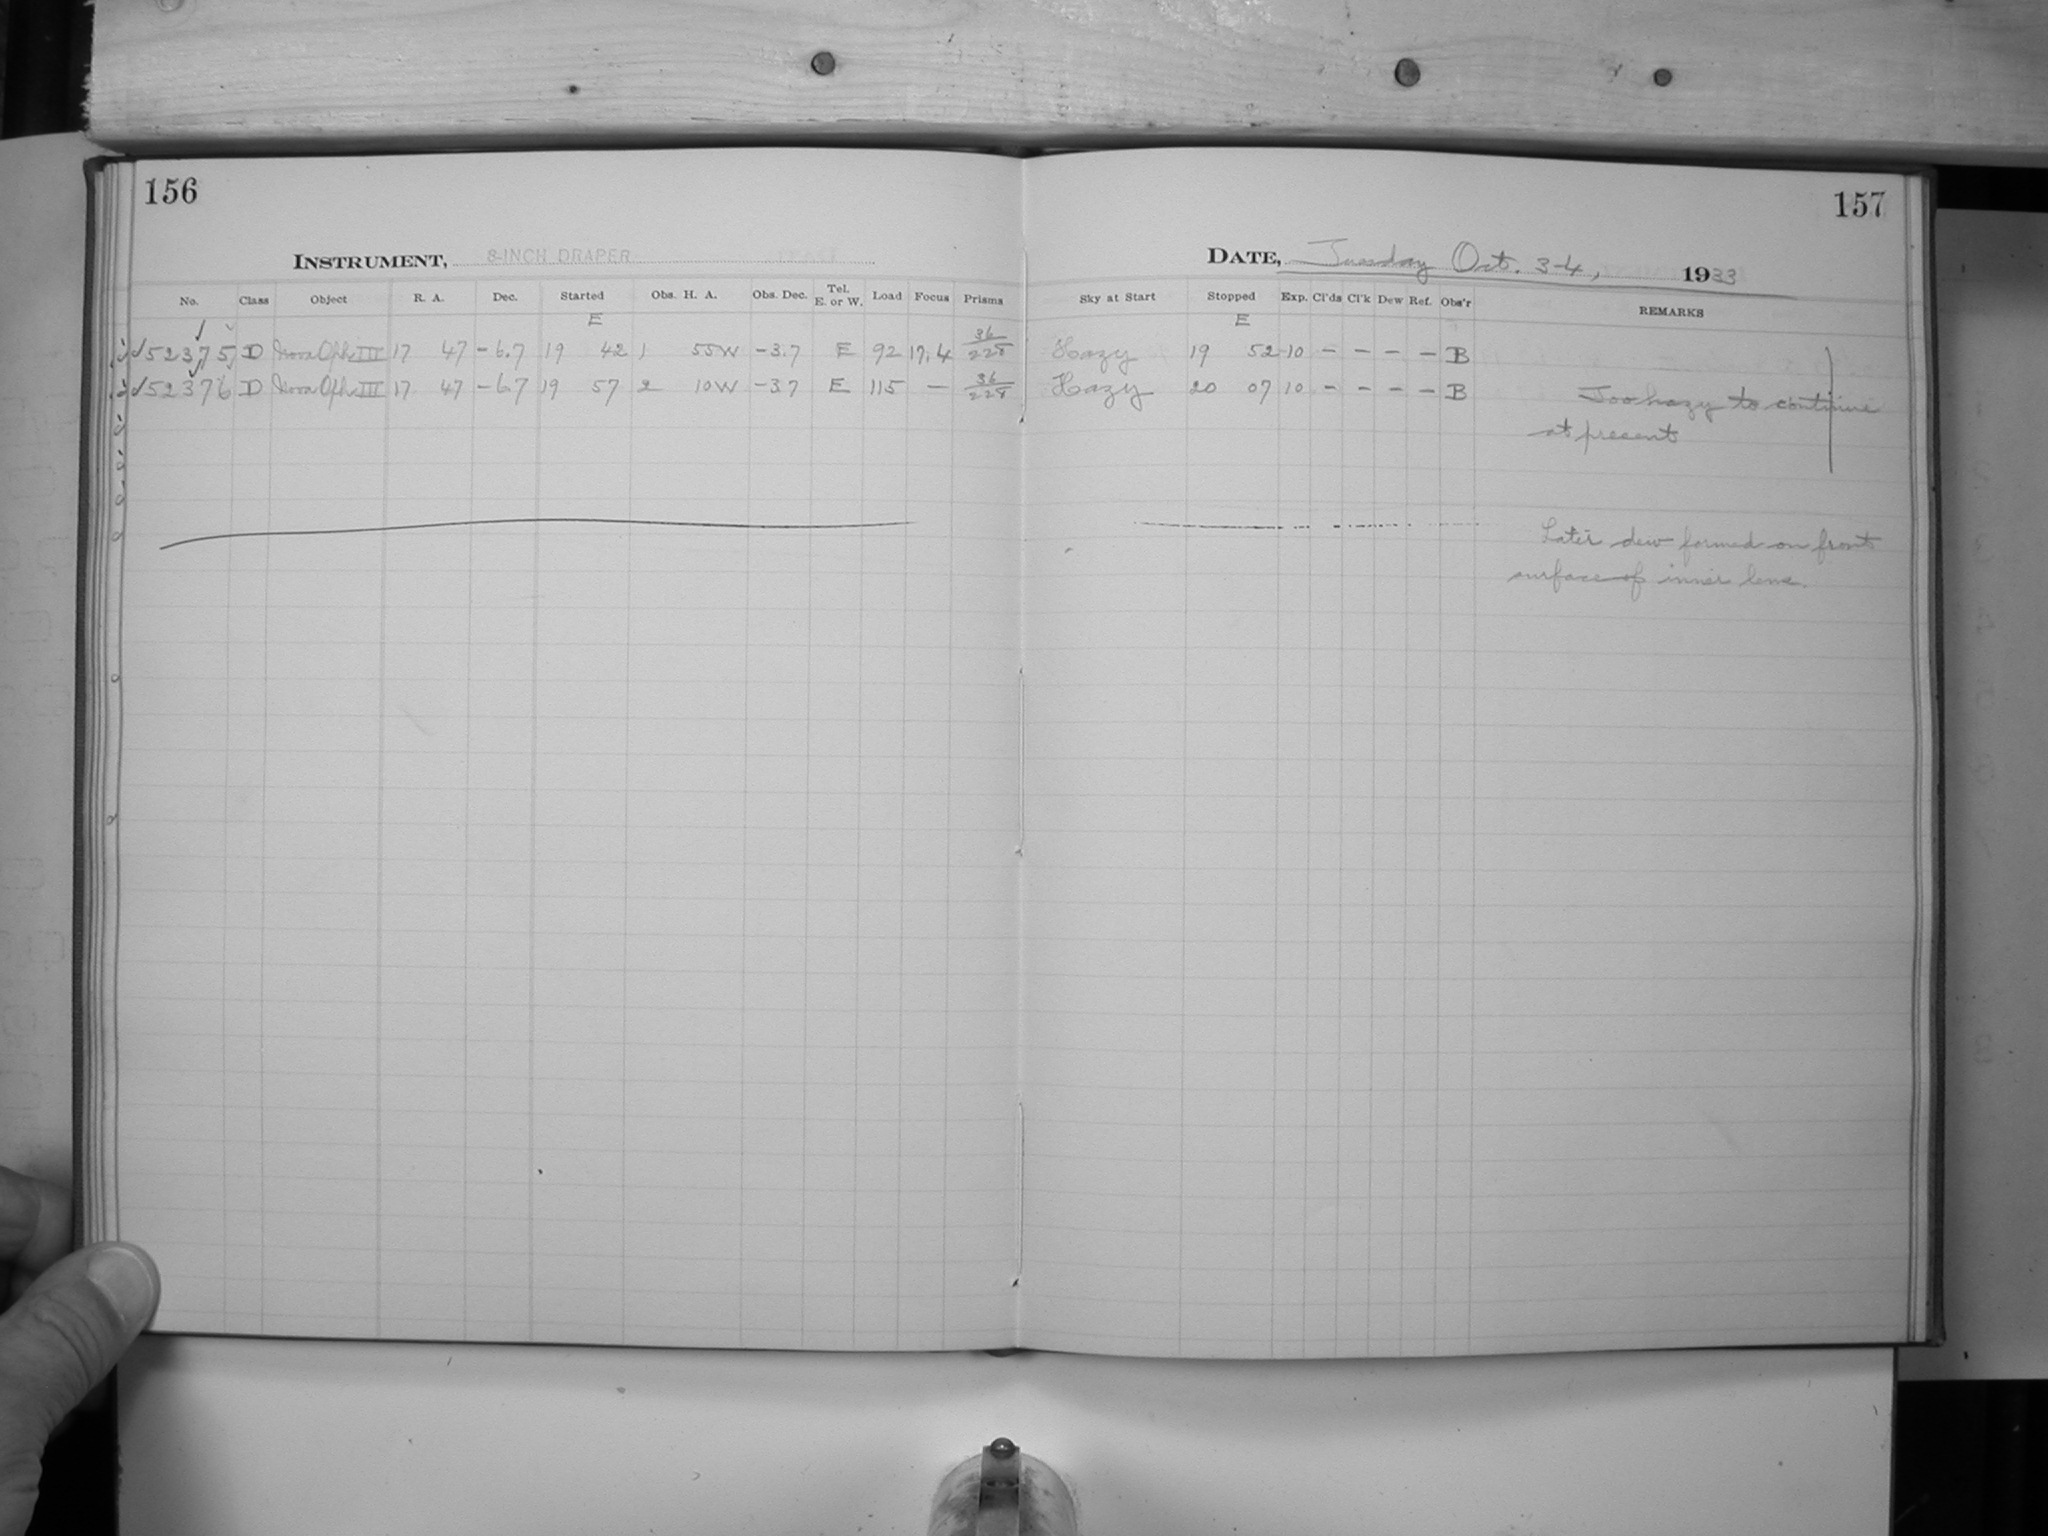 156
157
INSTRUMENT, 8-INCH DRAPER
DATE, Tuesday Oct. 3-4, 1933
No. Class Object R. A. Dec. Started Obs. H. A. Obs. Dec. Tel. E. or W. Load Focus Prisms Sky at Start Stopped Exp. Cl'ds Cl'k Dew Ref. Obs'r REMARKS
E E
52375 D Nova Oph III 17 47 -6.7 19 42 1 55W -3.7 E 92 17.4 36/228 Hazy 19 52 10 - - - - B
52376 D Nova Oph III 17 47 -6.7 19 57 2 10W -3.7 E 115 - 36/228 Hazy 20 07 10 - - - - B
Too hazy to continue
at present
Later dew formed on front
surface of inner lens.